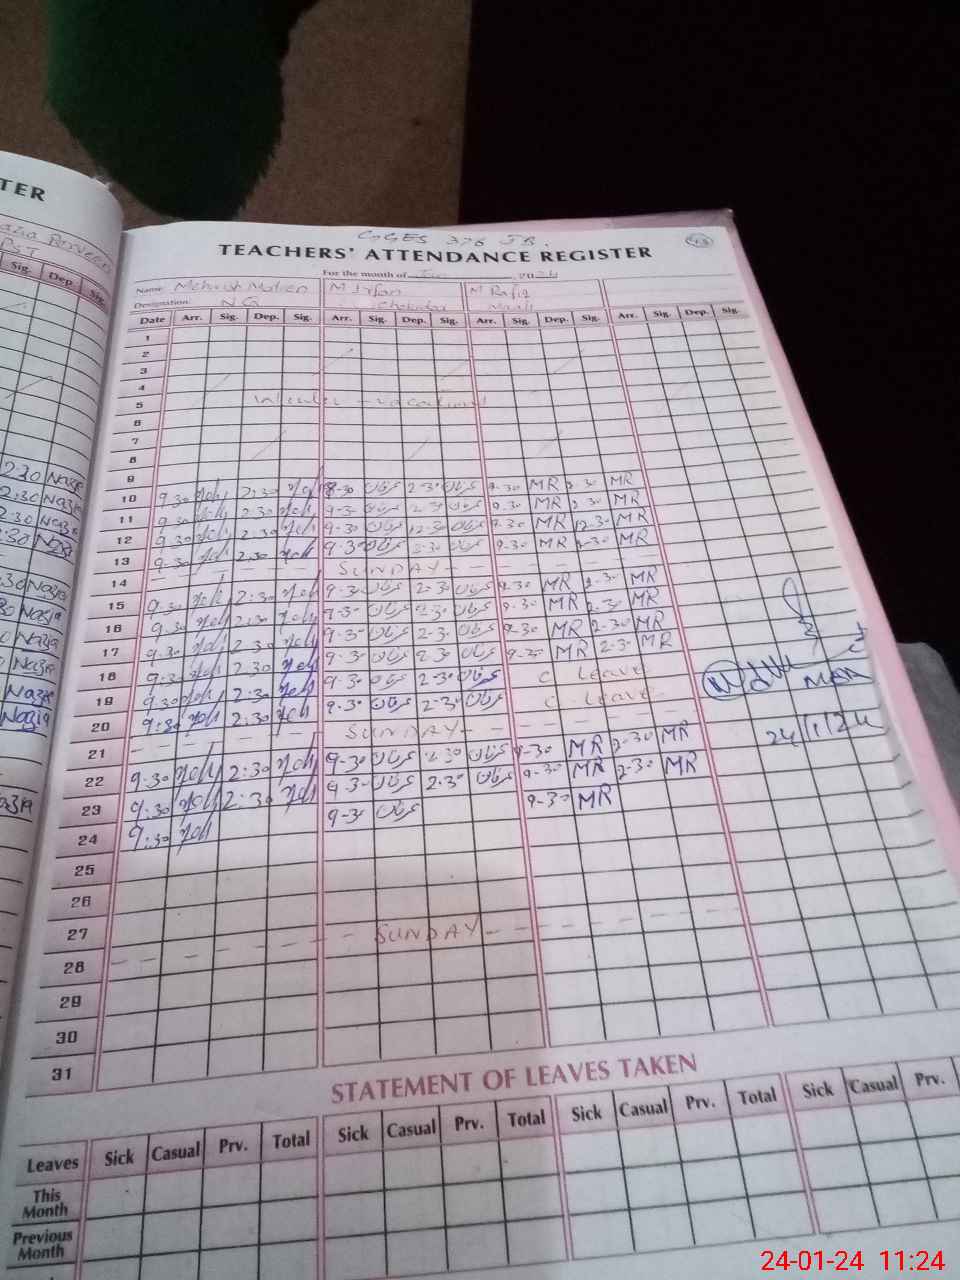 TER
PST
Sig. Dep. Sig.
GGES 376 JB.
TEACHERS' ATTENDANCE REGISTER
For the month of Jan 2024
Name: Mehwish M Irfan M Rafiq
Designation: NQ
Date Arr. Sig. Dep. Sig. Arr. Sig. Dep. Sig. Arr. Sig. Dep. Sig. Arr. Sig. Dep. Sig.
1
2
3
4
5 Winter - vacations
6
7
8
9
10 9.30 2:30 9-30 عرفان 2-30 عرفان 9-30 MR 2-30 MR
11 9.30 2:30 9-30 عرفان 2-30 عرفان 9-30 MR 2-30 MR
12 9.30 2:30 9-30 عرفان 12-30 عرفان 9-30 MR 12-30 MR
13 9.30 2:30 9-30 عرفان 2-30 عرفان 9-30 MR 2-30 MR
SUNDAY
14
15 9.30 2:30 9-30 عرفان 2-30 عرفان 9-30 MR 2-30 MR
16 9.30 2:30 9-30 عرفان 2-30 عرفان 9-30 MR 2-30 MR
17 9.30 2:30 9-30 عرفان 2-30 عرفان 9-30 MR 2-30 MR
18 9.30 2:30 9-30 عرفان 2-30 عرفان 9-30 MR 2-30 MR
19 9:30 2:30 9-30 عرفان 2-30 عرفان C Leave
20 9:30 2:30 9-30 عرفان 2-30 عرفان C - Leave
SUNDAY
21
22 9:30 2:30 9-30 عرفان 2-30 عرفان 9-30 MR 2-30 MR
23 9:30 2:30 9-30 عرفان 2-30 عرفان 9-30 MR 2-30 MR
24 9:30 9-30 عرفان 9-30 MR
MEA
24/1/24
25
26
27 SUNDAY
28
29
30
31
STATEMENT OF LEAVES TAKEN
Leaves Sick Casual Prv. Total Sick Casual Prv. Total Sick Casual Prv. Total Sick Casual Prv.
This Month
Previous Month
2:30 Nazia
2:30 Nazia
2:30 Nazia
:30 Nazia
:30 Nazia
30 Nazia
0 Nazia
Nazia
Nazia
Nazia
24-01-24 11:24